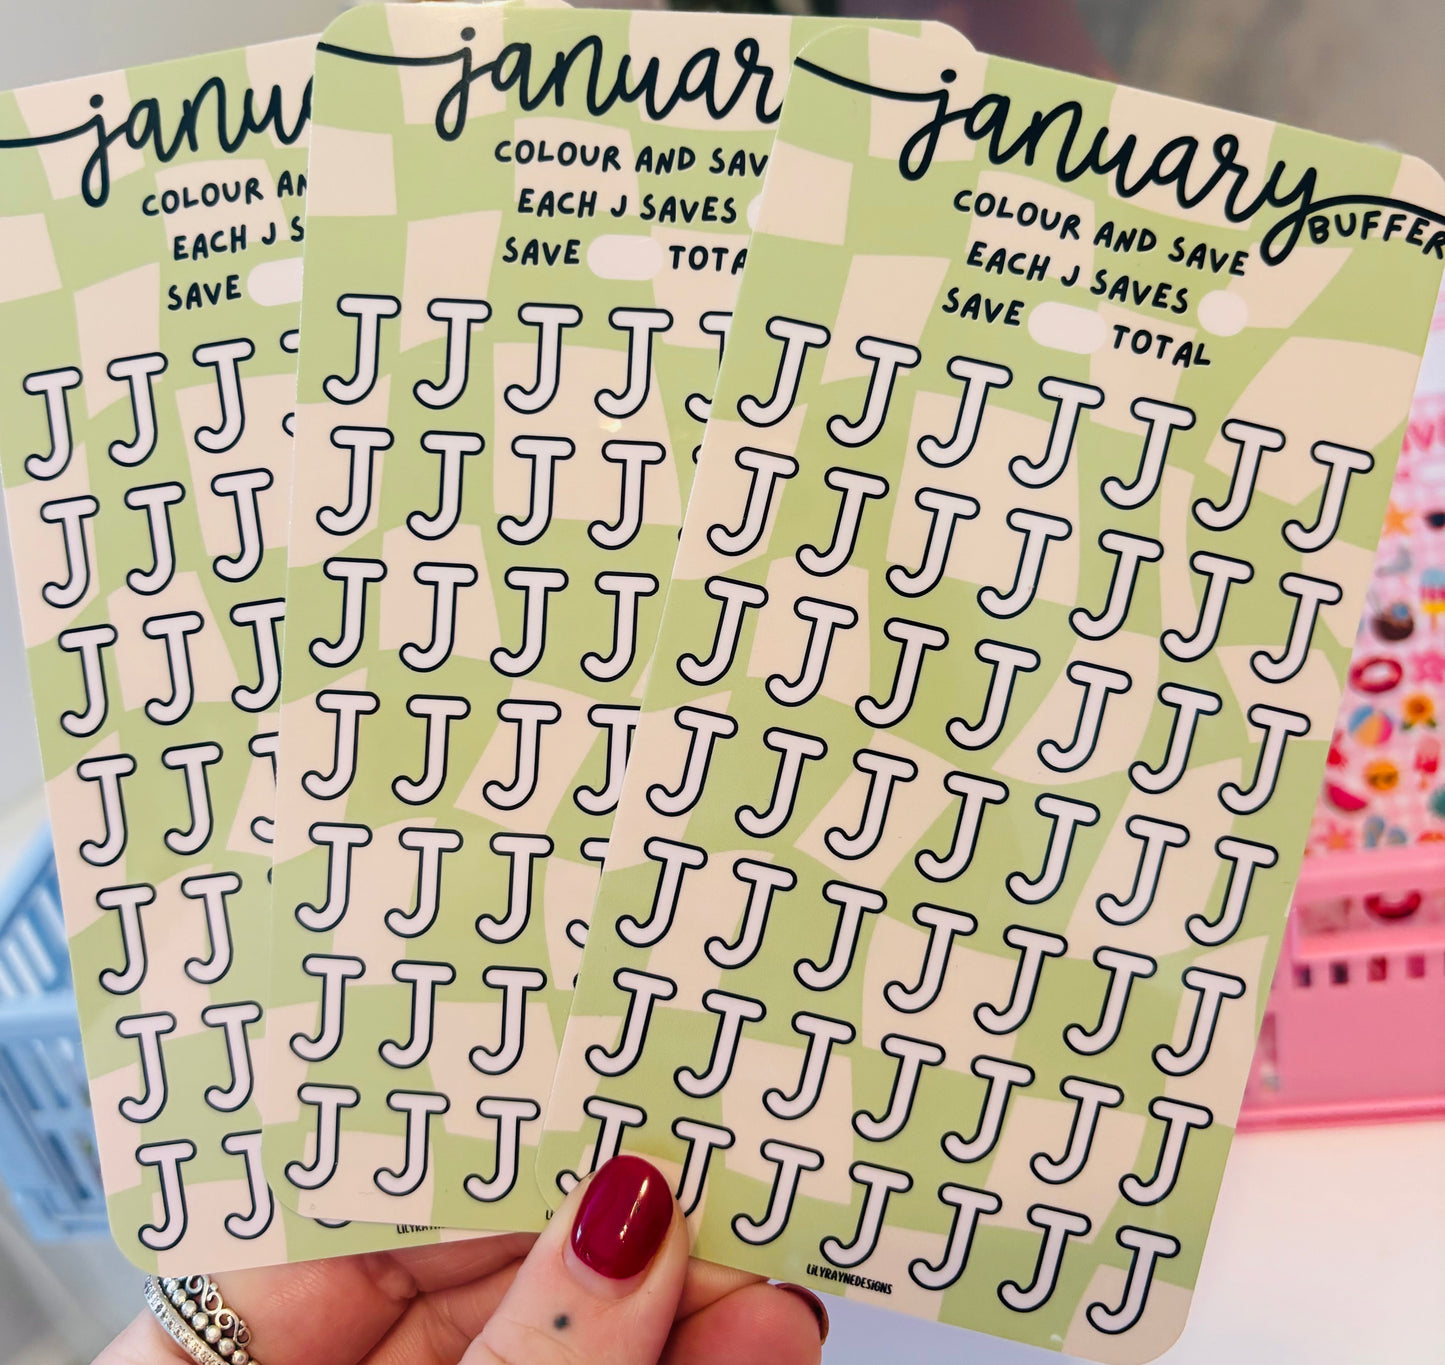 janu
COLOUR AN
EACH J S
SAVE
J J J
J J J
J J J
J J
J J
J J
J J
januar
COLOUR AND SAV
EACH J SAVES
SAVE TOTA
J J J J J
J J J J
J J J J
J J J J
J J J
J J J
J J J
january
BUFFER
COLOUR AND SAVE
EACH J SAVES
SAVE TOTAL
J J J J J J J
J J J J J J J
J J J J J J J
J J J J J J J
J J J J J J J
J J J J J J J
J J J J J J J
LILYRAYNEDESIGNS